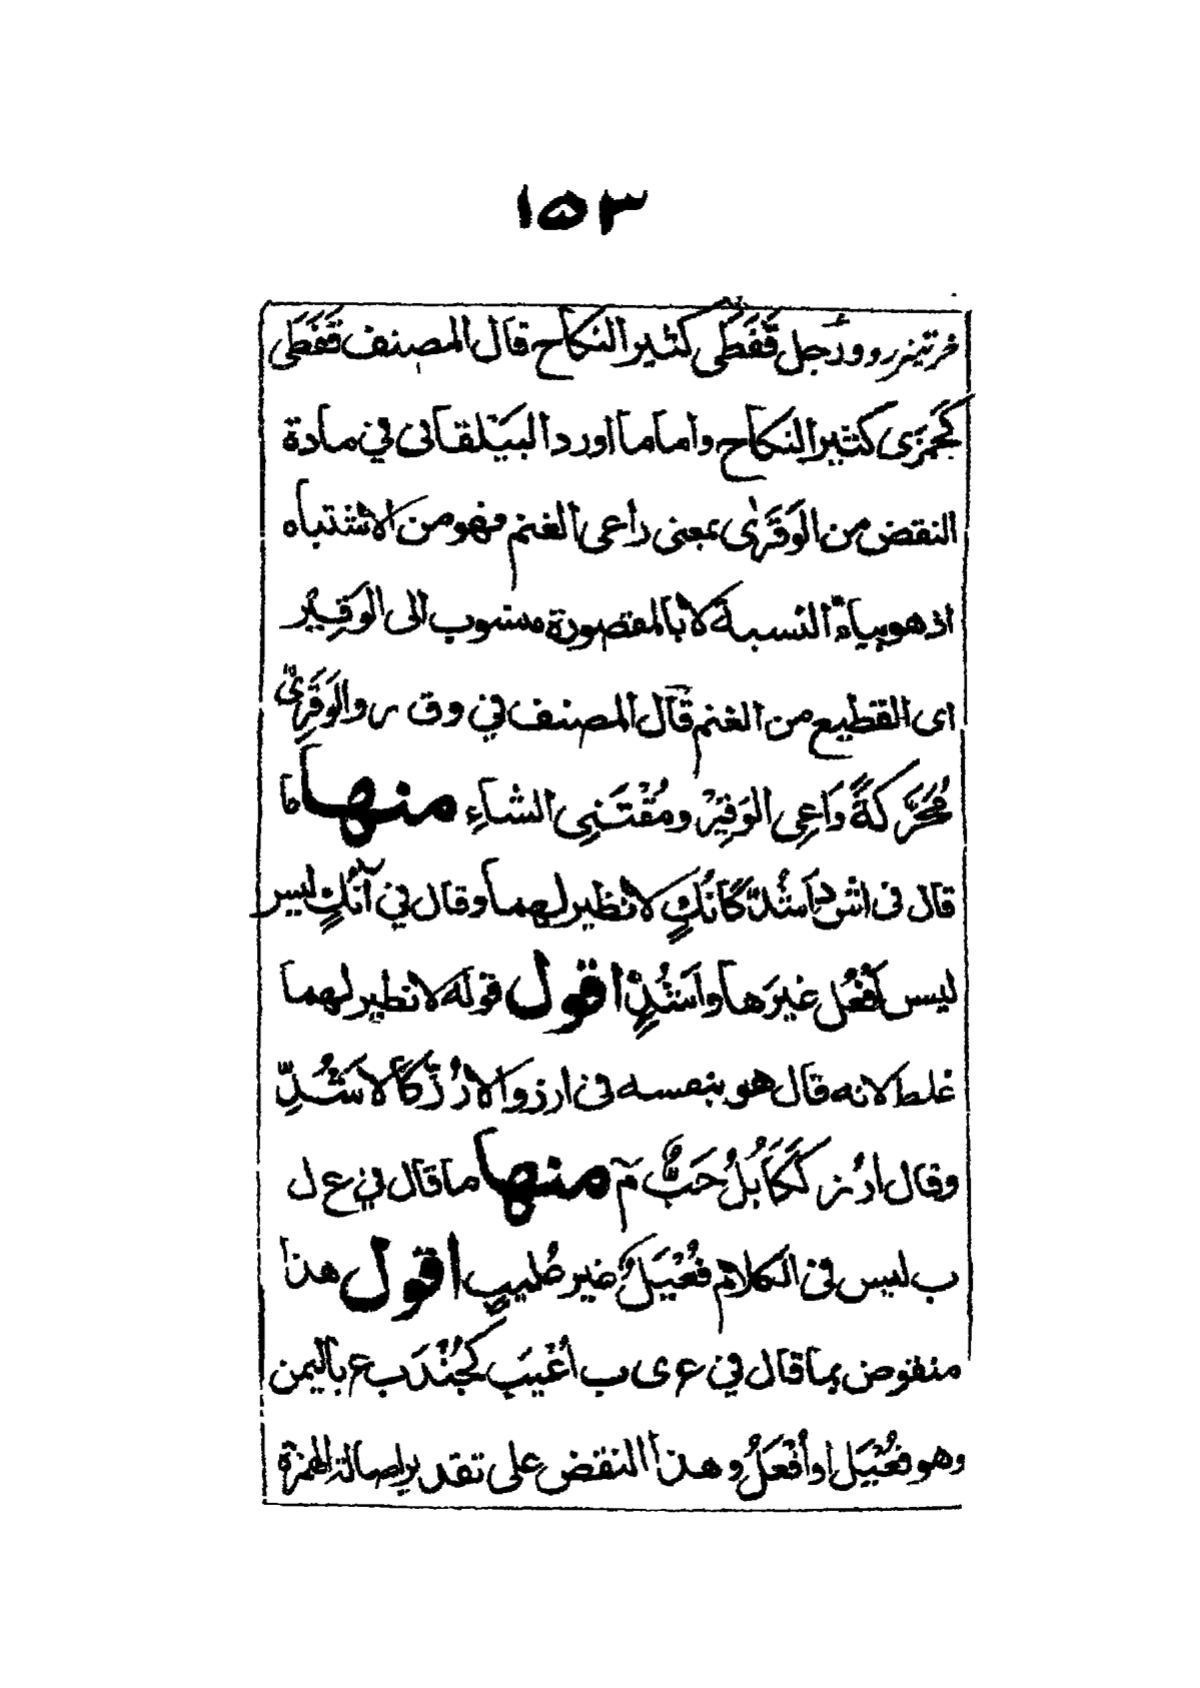 ١٥٣
ورجل قَفَطَى كثير النكاح قال المصنف قَفَطَى
كجَمَزَى كثير النكاح واما ما اورد البَيْلقانى فى مادة
النقض من الوَقَرٰى بمعنى راعى الغنم فهو من الاشتباه
اذ هو بياء النسبة لا بالمقصورة منسوب الى الوَقِيْر
اى القطيع من الغنم قال المصنف فى وق ر والوَقَرِىُّ
مُحَرَّكةً رَاعِى الوَقِيْرْ ومُقْتَنِى الشاءِ منها ما
قال فى اش د اَشُدّ كَآنُكٍ لا نظير لهما وقال فى آنُكٍ ليس
ليس أَفْعُل غيرَها واَشُدٍّ اقول قوله لا نظير لهما
غلط لانه قال هو بنفسه فى ارز والاُرُزّ كَالاَشُدِّ
وقال ارُز ككَابُلُ حَبٌّ م منها ما قال فى ع ل
ب ليس فى الكلام فُعْيَلٌ غير عُليب اقول هذا
منقوض بما قال فى ع ى ب اُعْيَب كجُنْدَب ع باليمن
وهو فُعْيَل او أُفْعَلُ وهذا النقض على تقدير اصالة الهمزة